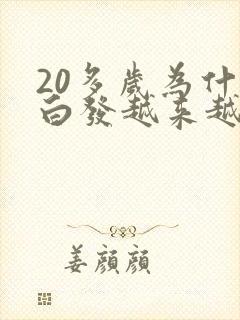 20多歲為什
白發越來越
姜顏顏